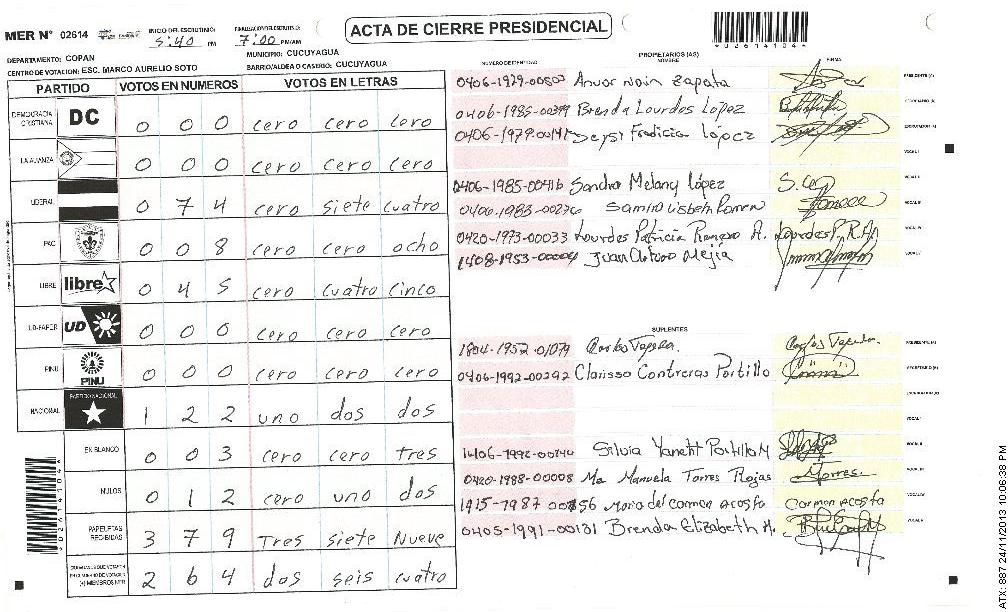 MER N° 02614
INICIO DEL ESCRUTINIO: 5:40 PM
FINALIZACION DEL ESCRUTINIO: 7:00 PM/AM
ACTA DE CIERRE PRESIDENCIAL
DEPARTAMENTO: COPAN
MUNICIPIO: CUCUYAGUA
CENTRO DE VOTACION: ESC. MARCO AURELIO SOTO
BARRIO/ALDEA O CASERIO: CUCUYAGUA
PARTIDO VOTOS EN NUMEROS VOTOS EN LETRAS
DEMOCRACIA CRISTIANA DC 0 0 0 cero cero cero
LA ALIANZA 0 0 0 cero cero cero
LIBERAL 0 7 4 cero siete cuatro
PAC 0 0 8 cero cero ocho
LIBRE libre 0 4 5 cero cuatro cinco
UD-FAPER UD 0 0 0 cero cero cero
PINU PINU 0 0 0 cero cero cero
NACIONAL PARTIDO NACIONAL 1 2 2 uno dos dos
EN BLANCO 0 0 3 cero cero tres
NULOS 0 1 2 cero uno dos
PAPELETAS RECIBIDAS 3 7 9 Tres siete Nueve
2 6 4 dos seis cuatro
PROPIETARIOS (AS)
NUMERO DE IDENTIDAD NOMBRE FIRMA
Anuor Noin Zapata PRESIDENTE (A)
0406-1985-00399 Brenda Lourdes López SECRETARIO (A)
Deysi López ESCRUTADOR (A)
VOCAL I
0406-1985-00416 Sandra Melany López VOCAL II
VOCAL III
0420-1973-00033 Lourdes Patricia Romero A. Lourdes P. R. A. VOCAL IV
Juan Arturo Mejia VOCAL V
SUPLENTES
1804-1952-01079 Carlos Tejeda. Carlos Tejeda. PRESIDENTE (A)
0406-1992-00292 Clarissa Contreras Portillo SECRETARIO (A)
ESCRUTADOR (A)
VOCAL I
Silvia Yaneht Portillo M VOCAL II
0420-1988-00008 Ma Manuela Torres Rojas Torres VOCAL III
Maria del carmen acosta Carmen acosta VOCAL IV
0405-1991-00131 Brenda Elizabeth H. VOCAL V
0261410 4 4
ATX: 887 24/11/2013 10:06:38 PM